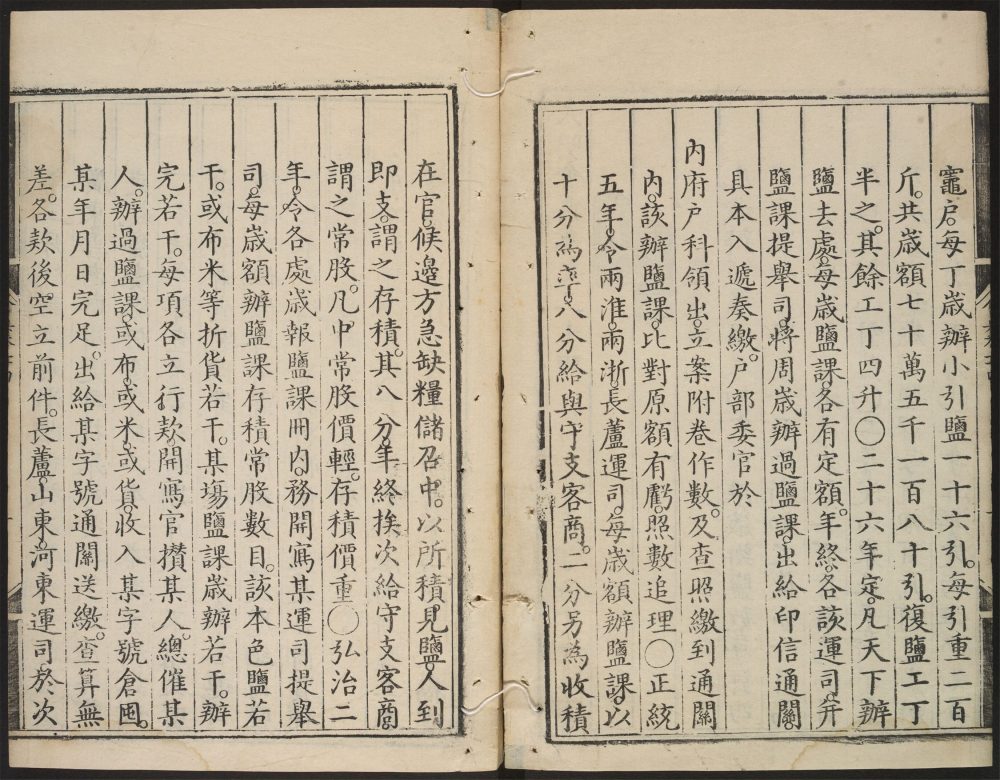 竈戶每丁歲辦小引鹽一十六引每引重二百
斤共歲額七十萬五千一百八十引復鹽工丁
半之其餘工丁四升〇二十六年定凡天下辦
鹽去處每歲鹽課各有定額年終各該運司并
鹽課提舉司將周歲辦過鹽課出給印信通關
具本入遞奏繳戶部委官於
內府戶科領出立案附卷作數及查照繳到通關
內該辦鹽課比對原額有虧照數追理〇正統
五年令兩淮兩浙長蘆運司每歲額辦鹽課以
十分為率八分給與守支客商二分另為收積
在官候邊方急缺糧儲召中以所積見鹽人到
即支謂之存積其八分年終挨次給守支客商
謂之常股凡中常股價輕存積價重〇弘治二
年令各處歲報鹽課冊內務開寫某運司提舉
司每歲額辦鹽課存積常股數目該本色鹽若
干或布米等折貨若干某場鹽課歲辦若干辦
完若干每項各立行款開寫官攢某人總催某
人辦過鹽課或布或米或貨收入某字號倉囤
某年月日完足出給某字號通關送繳查算無
差各款後空立前件長蘆山東河東運司於次